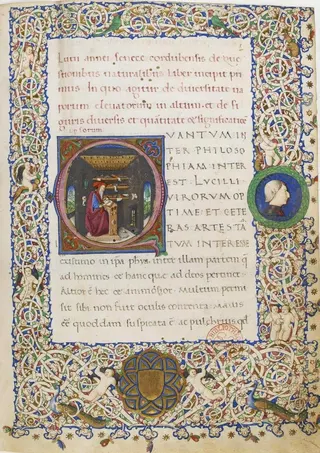 Lucii annei Senece cordubensis de que
stionibus naturalibus liber incipit pri
mus In quo agitur de diversitate va
porum elevatorum in altum et de fi
guris diversis et quantitate et significatione
ipsorum
QVANTVM IN
TER PHILOSO
PHIAM INTER
EST LVCILLI
VIRORVM OP
TIME ET CETE
RAS ARTES TĀ
TVM INTERESSE
existimo in ipā phya inter illam partem q̄
ad homines et hanc que ad deos pertinet
Altior ē hec et animosior Multum permi
sit sibi non fuit oculis contenta Maius
ēē quoddam suspicata ē ac pulchrius qđ